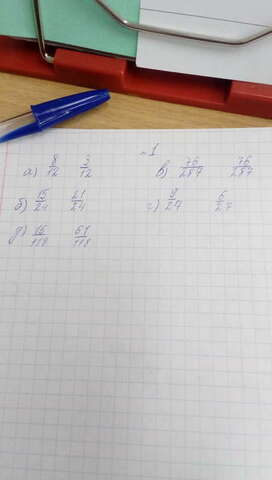 №1
а) 8/12 3/12 в) 75/287 76/287
б) 15/24 21/24 г) 9/27 6/27
д) 16/118 61/118